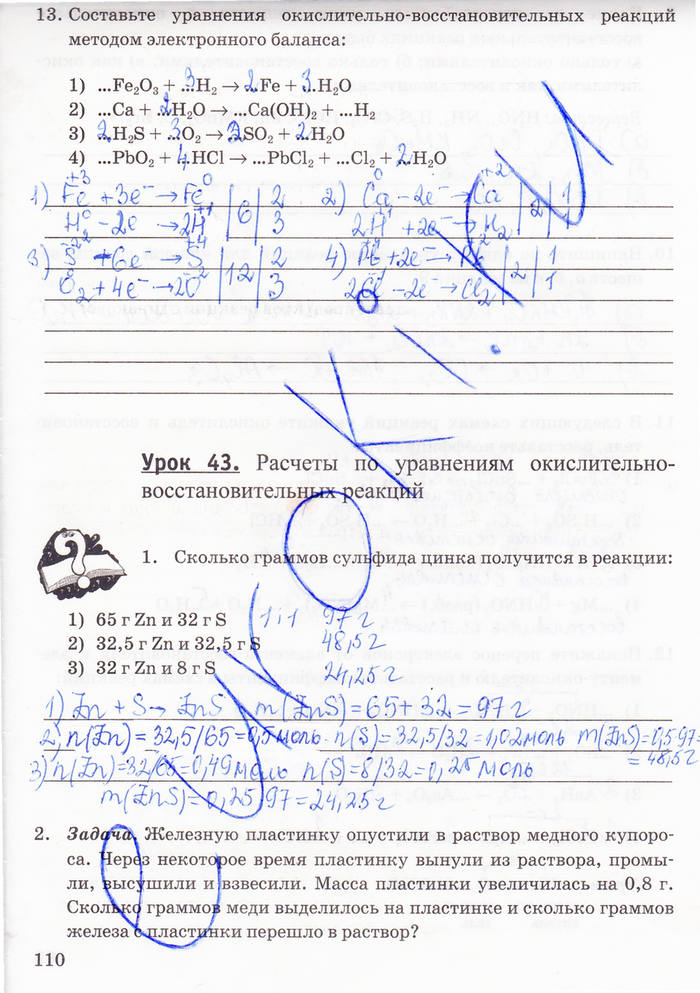 13. Составьте уравнения окислительно-восстановительных реакций
методом электронного баланса:
1) ...Fe₂O₃ + 3H₂ → 2Fe + 3H₂O
2) ...Ca + 2H₂O → ...Ca(OH)₂ + ...H₂
3) 2H₂S + 3O₂ → 2SO₂ + 2H₂O
4) ...PbO₂ + 4HCl → ...PbCl₂ + ...Cl₂ + 2H₂O
1) Fe⁺³ + 3e⁻ → Fe⁰ | 6 | 2 2) Ca⁰ - 2e⁻ → Ca⁺² | 2 | 1
H⁰ - 2e → 2H⁺¹ | 3 2H⁺¹ + 2e⁻ → H₂
3) S⁻² - 6e → S⁺⁴ | 12 | 2 4) Pb + 2e⁻ → Pb⁺² | 2 | 1
O₂ + 4e⁻ → 2O⁻² | 3 2Cl - 2e⁻ → Cl₂
Урок 43. Расчеты по уравнениям окислительно-
восстановительных реакций
1. Сколько граммов сульфида цинка получится в реакции:
1) 65 г Zn и 32 г S 1:1 97 г
2) 32,5 г Zn и 32,5 г S 48,5 г
3) 32 г Zn и 8 г S 24,25 г
1) Zn + S → ZnS m(ZnS) = 65 + 32 = 97 г
2) n(Zn) = 32,5/65 = 0,5 моль. n(S) = 32,5/32 = 1,02 моль m(ZnS) = 0,5·97 =
= 48,5 г
3) n(Zn) = 32/65 = 0,49 моль n(S) = 8/32 = 0,25 моль
m(ZnS) = 0,25·97 = 24,25 г
2. Задача. Железную пластинку опустили в раствор медного купоро-
са. Через некоторое время пластинку вынули из раствора, промы-
ли, высушили и взвесили. Масса пластинки увеличилась на 0,8 г.
Сколько граммов меди выделилось на пластинке и сколько граммов
железа с пластинки перешло в раствор?
110